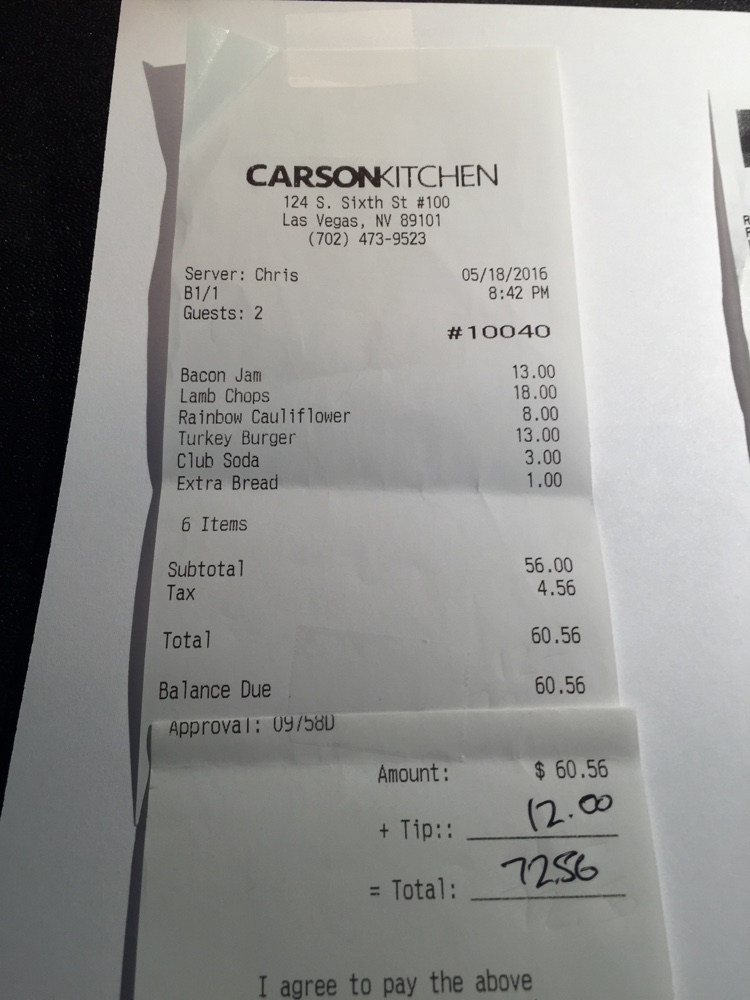 CARSONKITCHEN
124 S. Sixth St #100
Las Vegas, NV 89101
(702) 473-9523
Server: Chris 05/18/2016
B1/1 8:42 PM
Guests: 2
#10040
Bacon Jam 13.00
Lamb Chops 18.00
Rainbow Cauliflower 8.00
Turkey Burger 13.00
Club Soda 3.00
Extra Bread 1.00
6 Items
Subtotal 56.00
Tax 4.56
Total 60.56
Balance Due 60.56
Approval: 09758D
Amount: $ 60.56
+ Tip:: 12.00
= Total: 72.56
I agree to pay the above